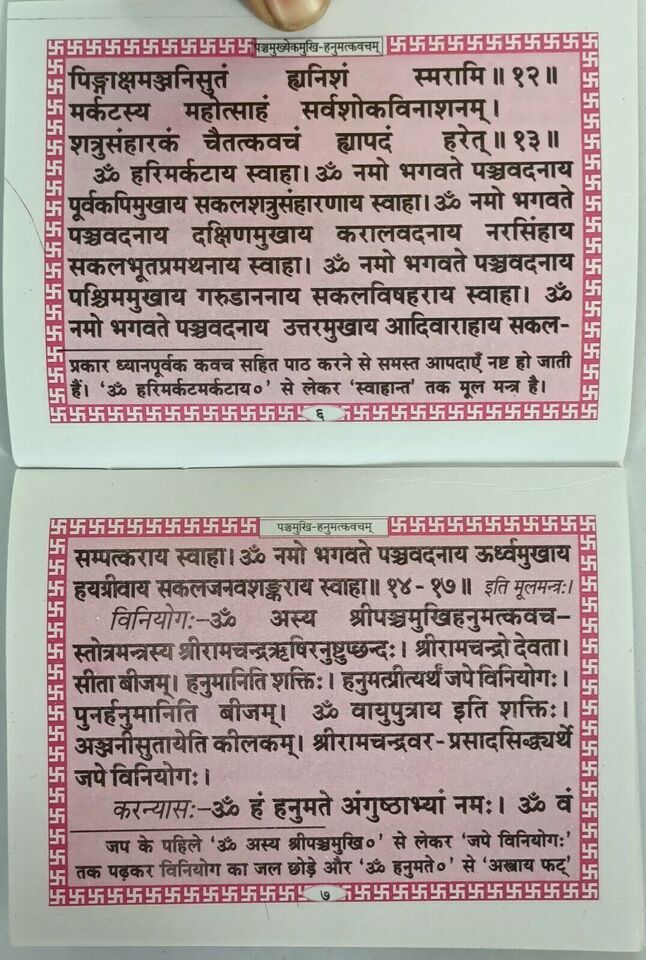 पञ्चमुख्येकमुखि-हनुमत्कवचम्
पिङ्गाक्षमञ्जनिसुतं ह्यनिशं स्मरामि॥१२॥
मर्कटस्य महोत्साहं सर्वशोकविनाशनम्।
शत्रुसंहारकं चैतत्कवचं ह्यापदं हरेत्॥१३॥
ॐ हरिमर्कटाय स्वाहा। ॐ नमो भगवते पञ्चवदनाय
पूर्वकपिमुखाय सकलशत्रुसंहारणाय स्वाहा। ॐ नमो भगवते
पञ्चवदनाय दक्षिणमुखाय करालवदनाय नरसिंहाय
सकलभूतप्रमथनाय स्वाहा। ॐ नमो भगवते पञ्चवदनाय
पश्चिममुखाय गरुडाननाय सकलविषहराय स्वाहा। ॐ
नमो भगवते पञ्चवदनाय उत्तरमुखाय आदिवाराहाय सकल-
प्रकार ध्यानपूर्वक कवच सहित पाठ करने से समस्त आपदाएँ नष्ट हो जाती
हैं। 'ॐ हरिमर्कटमर्कटाय०' से लेकर 'स्वाहान्त' तक मूल मन्त्र है।
६
पञ्चमुखि-हनुमत्कवचम्
सम्पत्कराय स्वाहा। ॐ नमो भगवते पञ्चवदनाय ऊर्ध्वमुखाय
हयग्रीवाय सकलजनवशङ्कराय स्वाहा॥ १४-१७॥ इति मूलमन्त्रः।
विनियोगः-ॐ अस्य श्रीपञ्चमुखिहनुमत्कवच-
स्तोत्रमन्त्रस्य श्रीरामचन्द्रऋषिरनुष्टुप्छन्दः। श्रीरामचन्द्रो देवता।
सीता बीजम्। हनुमानिति शक्तिः। हनुमत्प्रीत्यर्थं जपे विनियोगः।
पुनर्हनुमानिति बीजम्। ॐ वायुपुत्राय इति शक्तिः।
अञ्जनीसुतायेति कीलकम्। श्रीरामचन्द्रवर-प्रसादसिद्ध्यर्थे
जपे विनियोगः।
करन्यासः-ॐ हं हनुमते अंगुष्ठाभ्यां नमः। ॐ वं
जप के पहिले 'ॐ अस्य श्रीपञ्चमुखि०' से लेकर 'जपे विनियोगः'
तक पढ़कर विनियोग का जल छोड़े और 'ॐ हनुमते०' से 'अस्त्राय फट्'
७